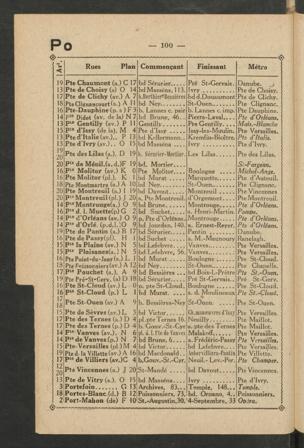 Po
— 100 —
Arr. Rues Plan Commençant Finissant Métro
19 Pte Chaumont (a.) C 17 bd Sérurier Pré St-Gervais. Danube.
13 Pte de Choisy (a) O 14 bd Masséna, 113. Ivry Pte de Choisy.
17 Pte de Clichy (av.) A 7 b.Berthier Bessières bd d.Douaumont Pte de Clichy.
18 Pte Clignancourt (a.) A 11 bd Ney. St-Ouen. Pte Clignanc.
16 Pte-Dauphine (p. a) F 3 b. Lannes c. pair b. Lannes c. imp. Pte Dauphine.
14 Pte Didot (av. de la) N 7 bd Brune, 46. Pierre-Laval. Pte d'Orléans.
13 Pte Gentilly (av.) P 11 Gentilly Pte Gentilly. Mais.-Blanche
15 Pte d'Issy (de la). M 4 Pte d'Issy Issy-les-Moulin. Pte Versailles.
13 Pte d'Italie (av.). P 13 bd Kellermann. Kremlin-Bicêtre. Pte d'Italie.
13 Pte d'Ivry (av.) O 15 bd Masséna Ivry Pte d'Ivry.
Pte des Lilas (p.) D 19 b. Sérurier-Mortier Les Lilas Pte des Lilas.
20 Pte de Ménil.(a. d.) F 19 bd. Mortier. St-Fargeau.
16 Pte Molitor (av.) K 0 Pte Molitor. Boulogne Michel-Ange.
16 Pte Molitor (pl.) K 1 bd Murat Marquette. Pte d'Auteuil.
18 Pte Montmartre (a.) A 10 bd Ney. St-Ouen. Pte Clignanc.
20 Pte Montreuil (a.) I 19 bd Davout Montreuil Pte Vincennes
20 Pte Montreuil (pl.) J 20 a. Pte Montreuil. d'Orgemont. Pte Montreuil
14 Pte Montrouge (a.) O 9 bd Brune. Montrouge. Pte d'Orléans.
16 Pte d. l. Muette (p) G 2 bd Suchet. a. Henri-Martin Pompe.
14 Pte d'Orléans (av.) O 9 p. Pte d'Orléans Montrouge. Pte d'Orléans.
14 Pte d'Orlé. (p.d.l.) O 9 bd Jourdan, 140. a. Ernest-Reyer. Pte d'Orléans.
19 Pte de Pantin (a.) B 17 bd Sérurier Pantin Pte Pantin.
16 Pte de Passy (pl). H 1 bd Suchet a. M.-Maunoury Ranelagh.
15 Pte la Plaine (av.) N 5 bd Lefebvre. Vanves. Pte Versailles.
15 Pte Plaisance. N 5 bd Lefebvre, 56. Vanves. Pte Versailles.
St-Cloud Pte St-Cloud.
18 Pte Poissonnière (av.) A 12 bd Ney. St-Ouen Pte Clignanc.
17 Pte Pouchet (a.) A 9 bd Bessières bd Bois-l.-Prêtre Pte St.-Ouen.
19 Pte Pré-St-Gerv. (a) D 18 bd Sérurier Pré St-Gervais. Pré St-Gerv.
16 Pte St-Cloud (av.) L 0 p. pte St-Cloud. Boulogne Pte St-Cloud.
16 Pte St-Cloud (p.) L 1 bd Murat a. d. Moulineaux Pte St-Cloud.
Pte St-Ouen (av.) A 9 b. Bessières-Ney St-Ouen. Pte St-Ouen.
15 Pte de Sèvres (av.) L 3 bd Victor. Pte Versailles.
17 Pte des Ternes (a.) D 4 pl. pte Ternes 16. Neuilly. Pte Maillot.
17 Pte des Ternes (p.) D 4 b. Gouv.-St.-Cyr a. pte des Ternes Pte Maillot.
14 Pte Vanves (av.) N 6 Malakoff. Pte Versailles.
14 Pte de Vanves (s.) N 7 bd Brune, 6. a. Frédéric-Passy Pte Versailles.
15 Pte- Versailles (pl) M 4 bd Victor. bd Lefebvre Pte Versailles.
19 Pte d. la Villette (av.) A 16 bd Macdonald. Aubervilliers-Pantin Pte Villette.
17 Pte de Villiers (av.) C 4 b. Gouv.-St.-Cyr. Neuil.-Lev.-Per. Pte Champe.
Pte Vincennes (a.) J 20 St-Mandé bd Davout. Pte Vincennes.
13 Pte de Vitry (a.) O 15 bd Masséna. Ivry Pte d'Ivry.
3 Portefoin G 13 Archives, 83 Temple, 148. Temple.
18 Portes-Blanc. (d.) B 12 Poissonniers, 73. bd. Ornano, 4. Poissonniers.
2 Port-Mahon (de) F 10 St.-Augustin, 30. 4-Septembre, 33 Opéra.